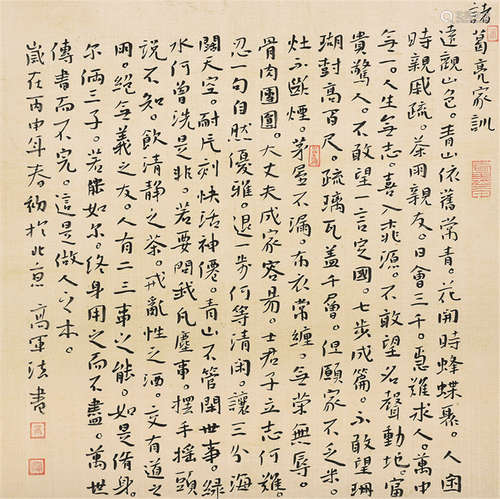 諸葛亮家訓
遠觀山色。青山依舊常青。花開時蜂蝶聚。人困
時親戚疏。茶雨親友。日會三千。惡難求人。萬中
無一。人生無志。喜入桃源。不敢望名聲動地。富
貴驚人。不敢望一言定國。七步成篇。不敢望珊
瑚封高百尺。疏璃瓦蓋千層。但願家不乏米。
灶不斷煙。茅屋不漏。布衣常纏。無榮無辱。
骨肉團圓。大丈夫成家容易。士君子立志何難。
忍一句自然優雅。退一步何等清閑。讓三分海
闊天空。耐片刻快活神僊。青山不管閑世事。綠
水何曾洗是非。若要問我凡塵事。擺手搖頭
說不知。飲清静之茶。戒亂性之酒。交有道之
朋。絕無義之友。人有二三事之能。如是脩身。
尔俩三子。若能如尔。終身用之而不盡。萬世
傳書而不完。這是做人之本。
歲在丙申年春初於北京 高軍法書